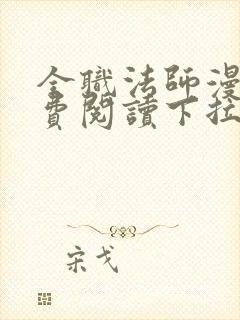 全職法師漫
費閱讀下拉
宋戈